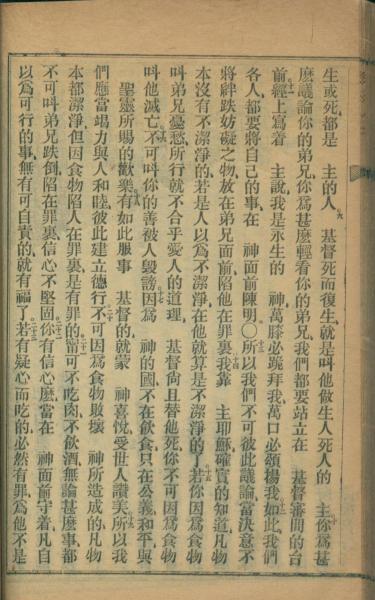 生或死、都是 主的人、九 基督死而復生、就是叫他做生人死人的 主、十 你爲甚
麽議論你的弟兄、你爲甚麽輕看你的弟兄、我們都要站立在 基督審問的台
前、十一 經上寫着 主說、我是永生的 神、萬膝必跪拜我、萬口必頌揚我、十二 如此我們
各人、都要將自己的事、在 神面前陳明、〇十三 所以我們不可彼此議論、當決意不
將絆跌妨礙之物、放在弟兄面前、陷他在罪裏、十四 我靠 主耶穌確實的知道、凡物
本沒有不潔淨的、若是人以爲不潔淨、在他就算是不潔淨的了、十五 若你因爲食物
叫弟兄憂愁、所行就不合乎愛人的道理、 基督尙且替他死、你不可因爲食物
叫他滅亡、十六 不可叫你的善被人毀謗、十七 因爲 神的國、不在飲食、只在公義和平、與
聖靈所賜的歡樂、十八 有如此服事 基督的、就蒙 神喜悅、受世人讚美、十九 所以我
們應當竭力與人和睦、彼此建立德行、二十 不可因爲食物敗壞 神所造成的、凡物
本都潔淨、但因食物陷人在罪裏、是有罪的、二十一 寧可不吃肉、不飲酒、無論甚麽事、都
不可叫弟兄跌倒、陷在罪裏、信心不堅固、二十二 你有信心麽、當在 神面前守着、凡自
以爲可行的事、無有可自責的、就有福了、二十三 若有疑心而吃的、必然有罪、爲他不是